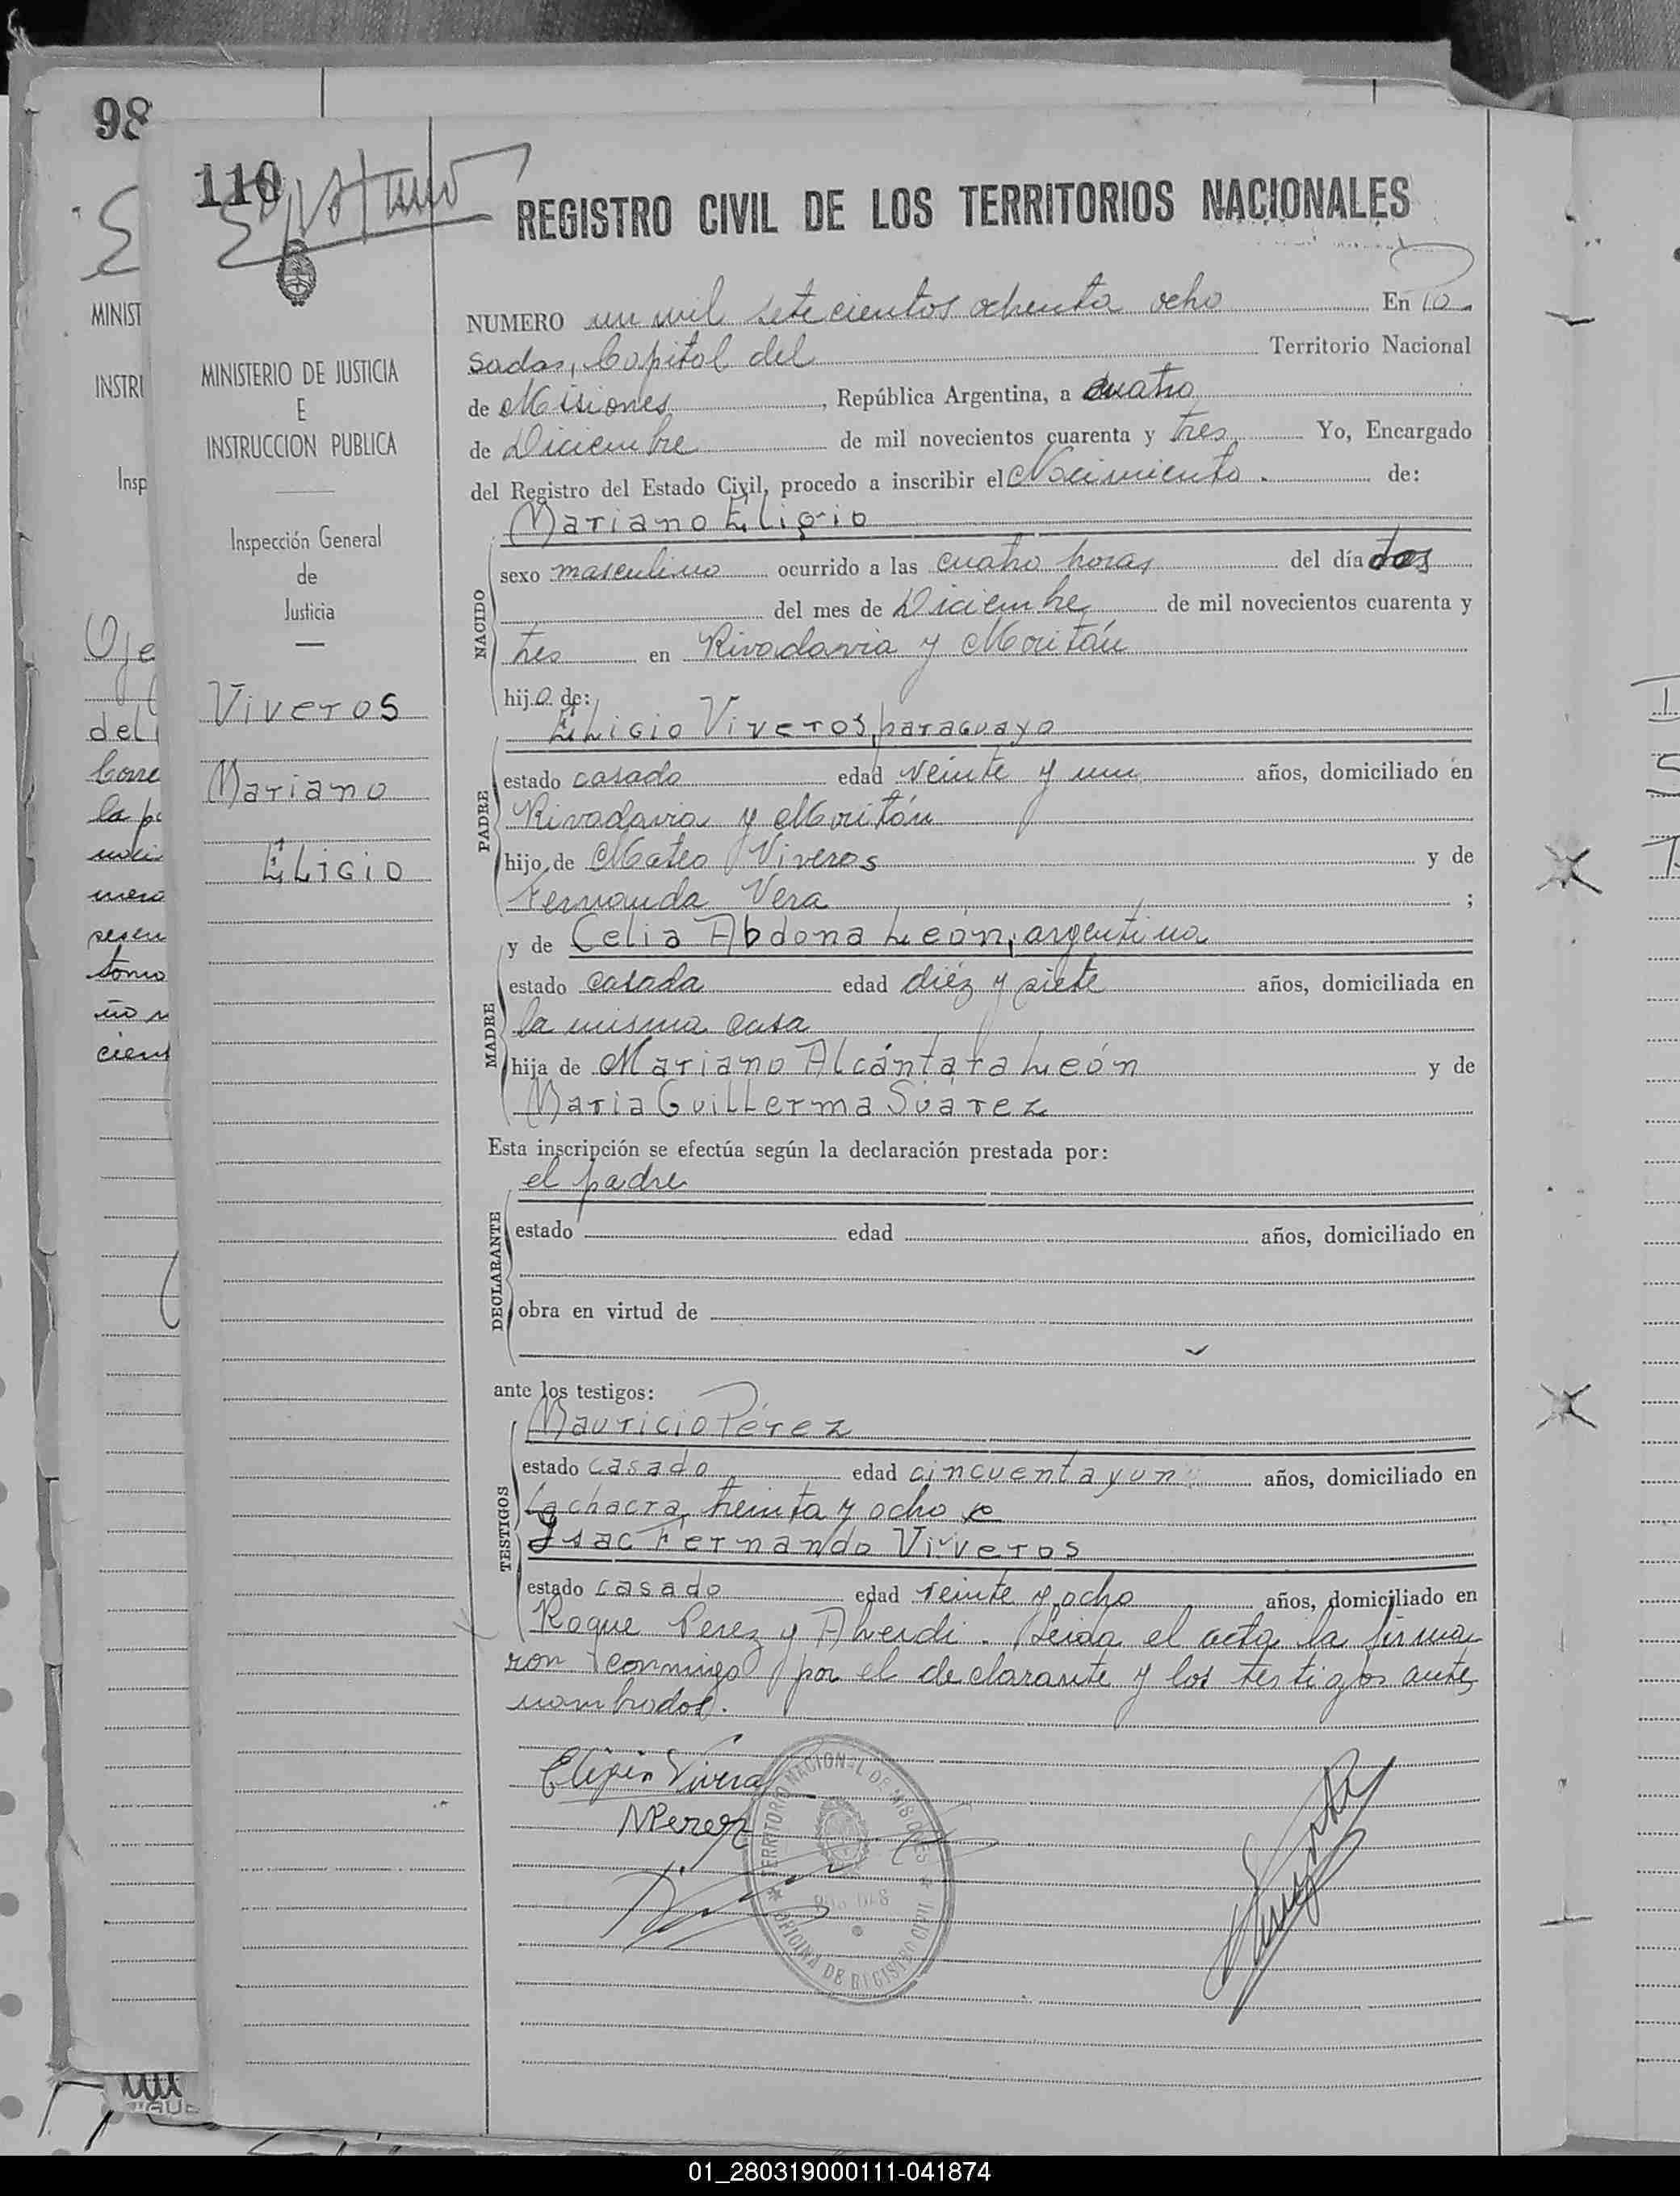 98
110
REGISTRO CIVIL DE LOS TERRITORIOS NACIONALES
MINIST
INSTRI
Insp
Oje
del
Corre
la p
mero
tomo
cient
MINISTERIO DE JUSTICIA
E
INSTRUCCION PUBLICA
Inspección General
de
Justicia
Viveros
Mariano
Eligio
NUMERO un mil setecientos ochenta ocho En Po
sadas, Capital del Territorio Nacional
de Misiones, República Argentina, a cuatro
de Diciembre de mil novecientos cuarenta y tres Yo, Encargado
del Registro del Estado Civil, procedo a inscribir el Nacimiento. de:
Mariano Eligio
NACIDO
sexo masculino ocurrido a las cuatro horas del día dos
del mes de Diciembre de mil novecientos cuarenta y
tres en Rivadavia y Moritán
hijo de:
Eligio Viveros, paraguayo
PADRE
estado casado edad veinte y un años, domiciliado en
Rivadavia y Moritán
hijo de Mateo Viveros y de
Fernanda Vera ;
y de Celia Abdona León, argentina
MADRE
estado casada edad diéz y siete años, domiciliada en
la misma casa
hija de Mariano Alcántara León y de
Maria Guillerma Suarez
Esta inscripción se efectúa según la declaración prestada por:
el padre
DECLARANTE
estado edad años, domiciliado en
obra en virtud de
ante los testigos:
Mauricio Pérez
TESTIGOS
estado casado edad cincuenta y un años, domiciliado en
La chacra, treinta y ocho e
Isac Fernando Viveros
estado casado edad veinte y ocho años, domiciliado en
Roque Perez y Alverdi. Leida el acta la firma
ron conmigo por el declarante y los testigos antes
nombrados.
Eligio Viveros
MPerez
TERRITORIO NACIONAL DE MISIONES
OFICINA DE REGISTRO CIVIL
01_280319000111-041874